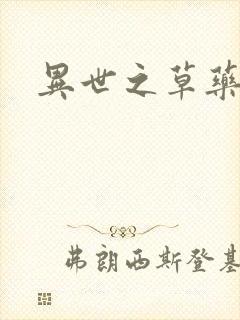 異世之草藥
弗朗西斯登基